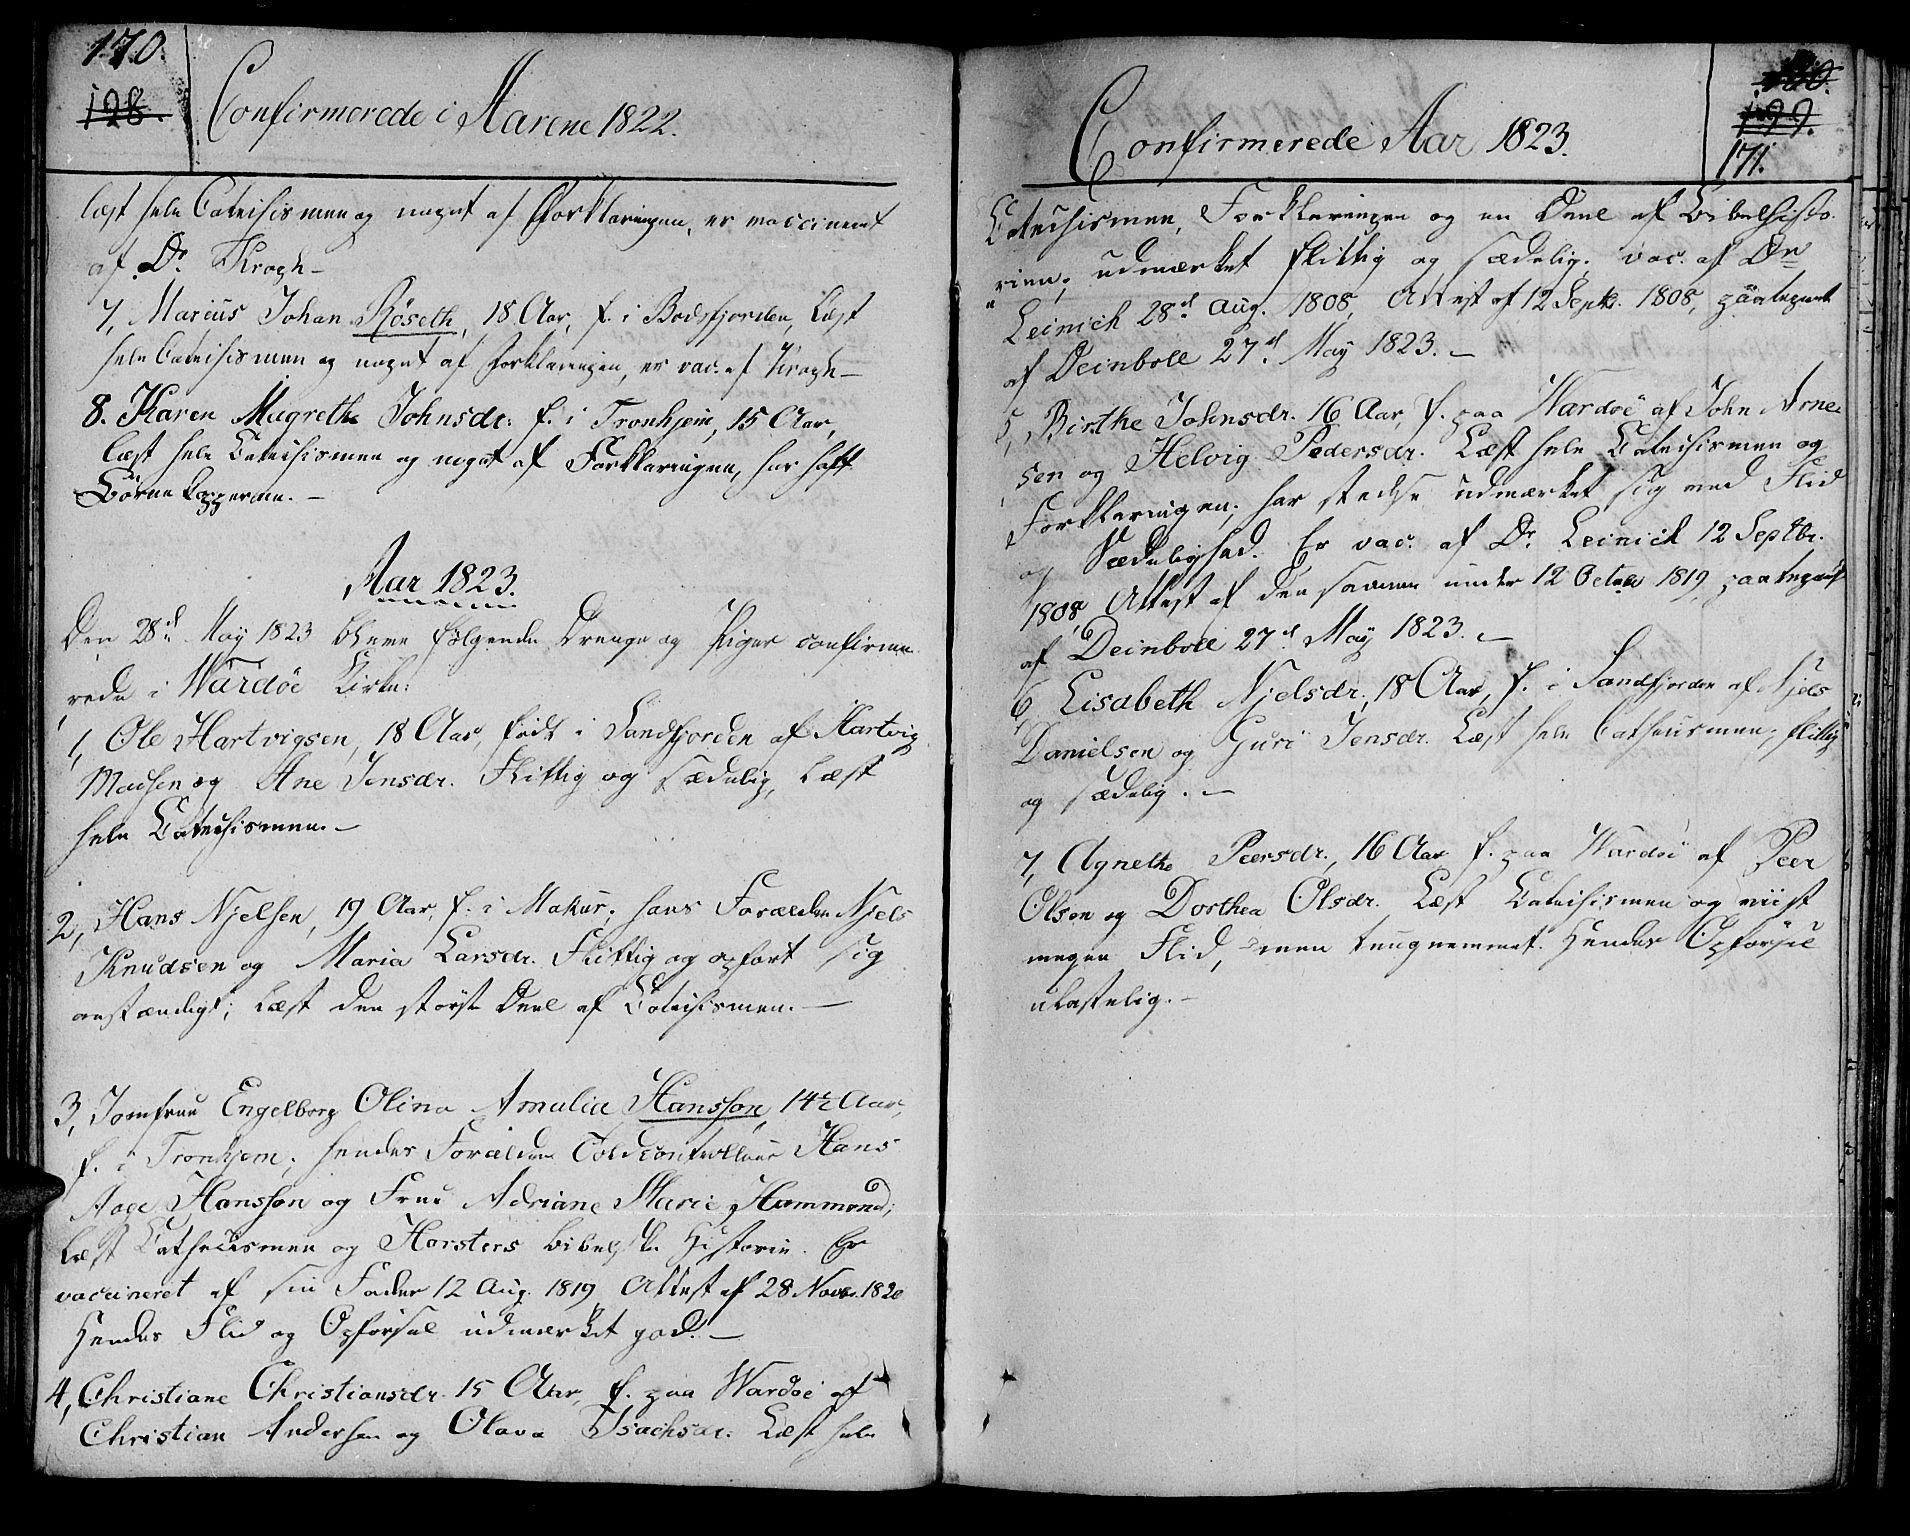 170.
198.
Confirmerede i Aarene 1822.
læst hele Catechismen og noget af Forklaringen, er vaccineret
af Dr. Krogh –
7, Marcus Johan Röseth, 18 Aar, f. i Bodsfjorden, Læst
hele Catechismen og noget af Forklaringen, er vac. af Krogh –
8. Karen Magrethe Johnsdr. f. i Tronhjem, 15 Aar,
læst hele Catechismen og noget af Forklaringen, har haft
Börnekopperne. –
Aar 1823.
Den 28d May 1823 bleve følgende Drenge og Piger confirme-
rede i Wardöe Kirke:
1, Ole Hartvigsen, 18 Aar, födt i Sandfjorden af Hartvig
Madsen og Ane Jensdr. Flittig og sædelig, Læst
hele Catechismen. –
2, Hans Njelsen, 19 Aar, f. i Makur; hans Forældre Njels
Knudsen og Maria Larsdr. Flittig og opfört sig
anstændigt; Læst den störste Deel af Catechismen. –
3, Jomfrue Engelborg Olina Amalia Hansson, 14½ Aar,
f. i Tronhjem; hendes Forældre Toldcontrolleur Hans
Aage Hansson og Frue Adriane Marie Hammond;
Læst Cathecismen og Horsters bibelske Historie. Er
vaccineret af sin Fader 12 Aug. 1819 Attest af 28 Novr. 1820
Hendes Flid og Opförsel udmærket god. –
4, Christiane Christiansdr. 15 Aar, f. paa Wardöe af
Christian Andersen og Olava Isachsdr. Læst hele
199.
171.
Confirmerede Aar 1823.
Catechismen, Forklaringen og en Deel af Bibelhisto-
rien; udmærket flittig og sædelig; vac. af Dr
Leinich 28d Aug. 1808, Attest af 12 Septr. 1808, paategnet
af Deinboll 27d May 1823. –
5, Birthe Johnsdr. 16 Aar, f. paa Wardöe af John Arne-
sen og Helvig Pedersdr. Læst hele Catechismen og
Forklaringen; har stedse udmærket sig ved Flid
og Sædelighed. Er vac. af Dr. Leinich 12 Septbr.
1808, Attest af den samme under 12 Octobr 1819, paategnet
af Deinboll 27d May 1823. –
6, Lisabeth Njelsdr., 18 Aar, f. i Sandfjorden af Njels
Danielsen og Guri Jensdr. Læst hele Cathecismen; flittig
og sædelig. –
7, Agnethe Peersdr., 16 Aar f. paa Wardöe af Peer
Olsen og Dorthea Olsdr. Læst Catechismen og viist
megen Flid, men tungnemmet. Hendes Opförsel
ulastelig. –